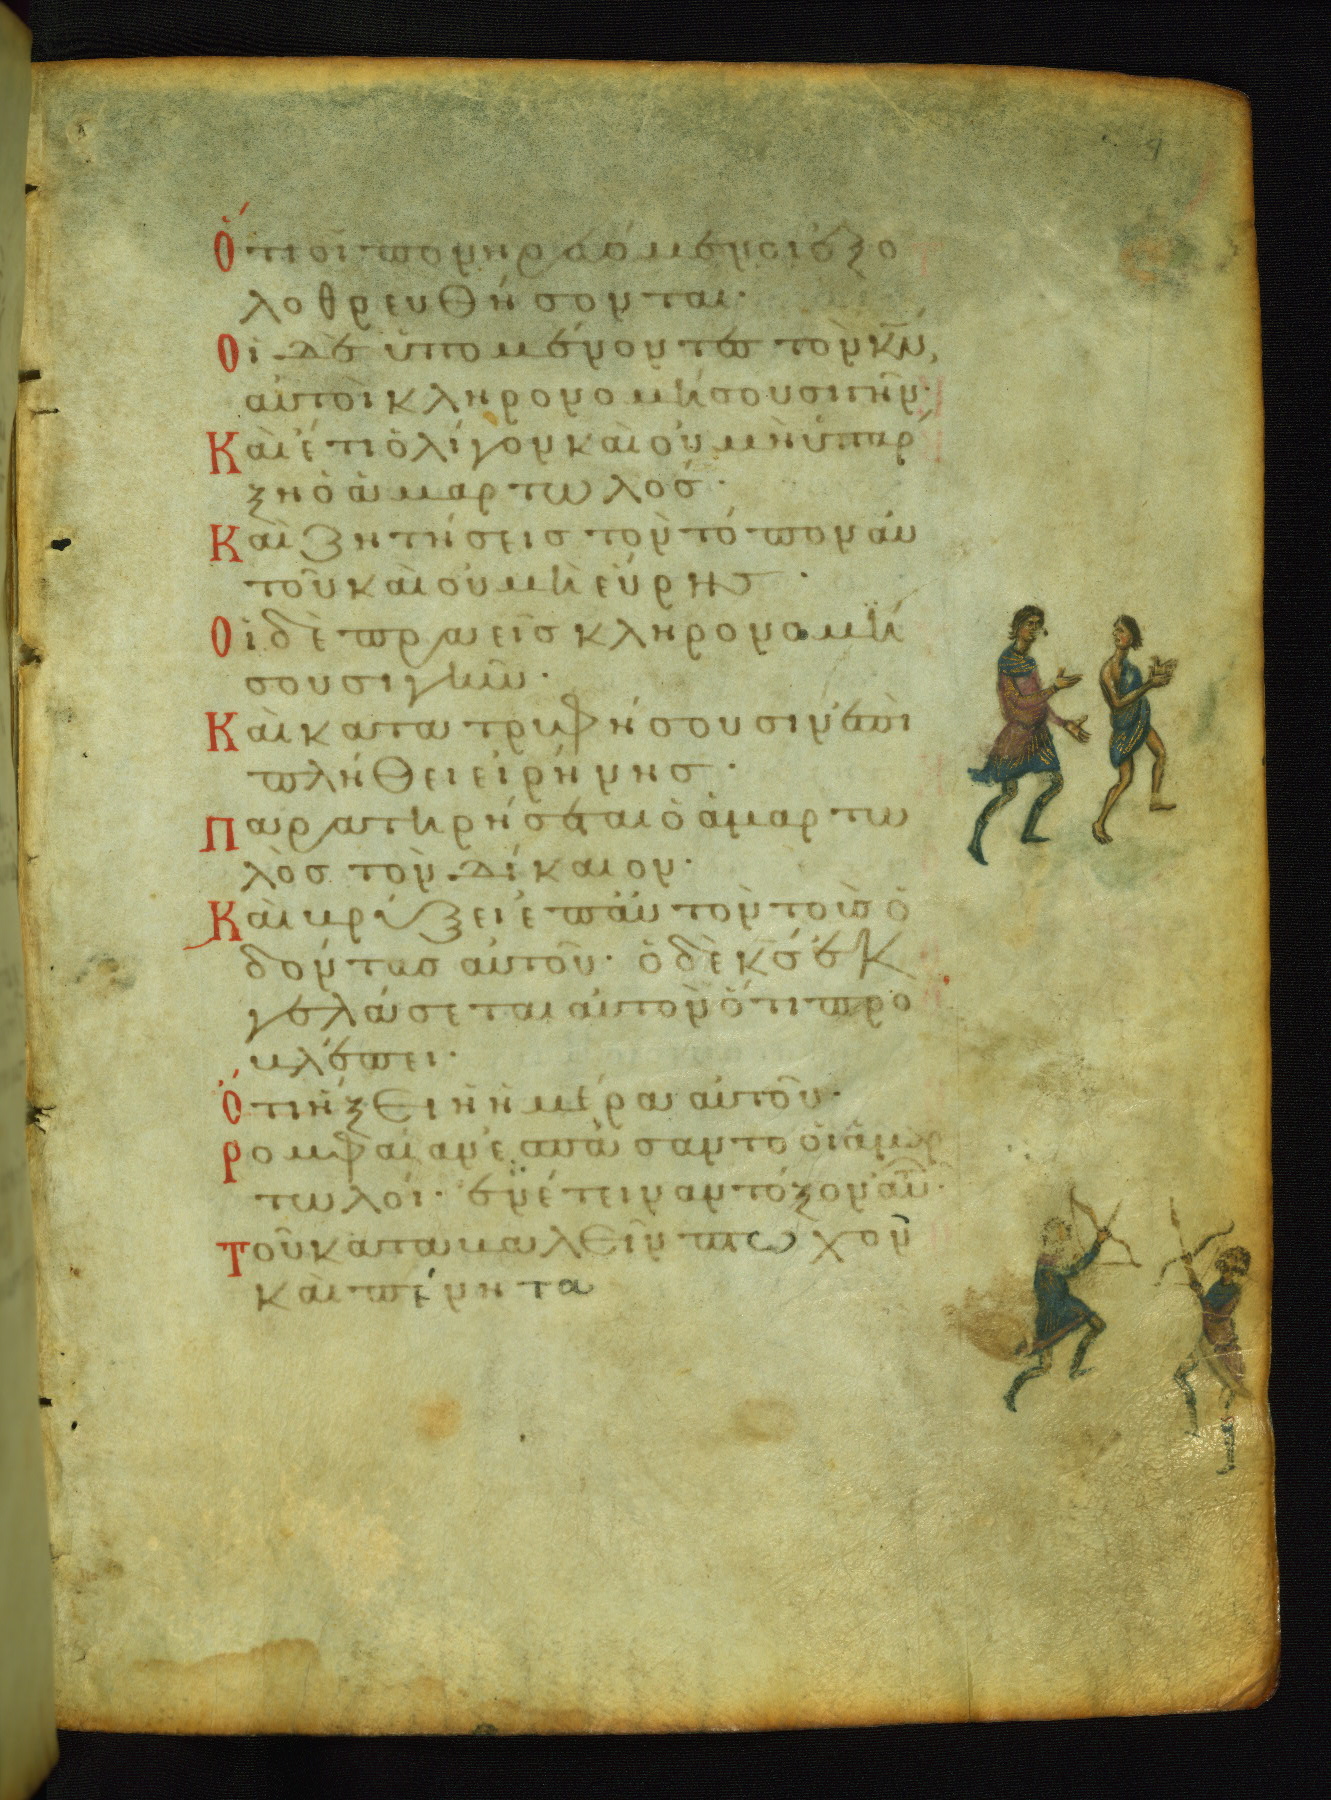 Ὅτι οἱ πονηρευόμενοι ἐξο
λοθρευθήσονται·
Οἱ δὲ ὑπομένοντες τὸν κν̅,
αὐτοὶ κληρονομήσουσι γῆν·
Καὶ ἔτι ὀλίγον καὶ οὐ μὴ ὑπάρ
ξη ὁ ἁμαρτωλός·
Καὶ ζητήσεις τὸν τόπον αὐ
τοῦ καὶ οὐ μὴ εὕρης·
Οἱ δὲ πραεῖς κληρονομή
σουσι γῆν·
Καὶ κατατρυφήσουσιν ἐπὶ
πλήθει εἰρήνης·
Παρατηρήσεται ὁ ἁμαρτω
λὸς τὸν δίκαιον·
Καὶ βρύξει ἐπ' αὐτὸν τοὺς ὀ
δόντας αὐτοῦ· ὁ δὲ κς̅ ἐκ
γελάσεται αὐτὸν ὅτι προ
βλέπει·
Ὅτι ἥξει ἡ ἡμέρα αὐτοῦ·
Ρομφαίαν ἐσπάσαντο οἱ ἁμαρ
τωλοί· ἐνέτειναν τόξον αὐ·
Τοῦ καταβαλεῖν πτωχὸν
καὶ πένητα